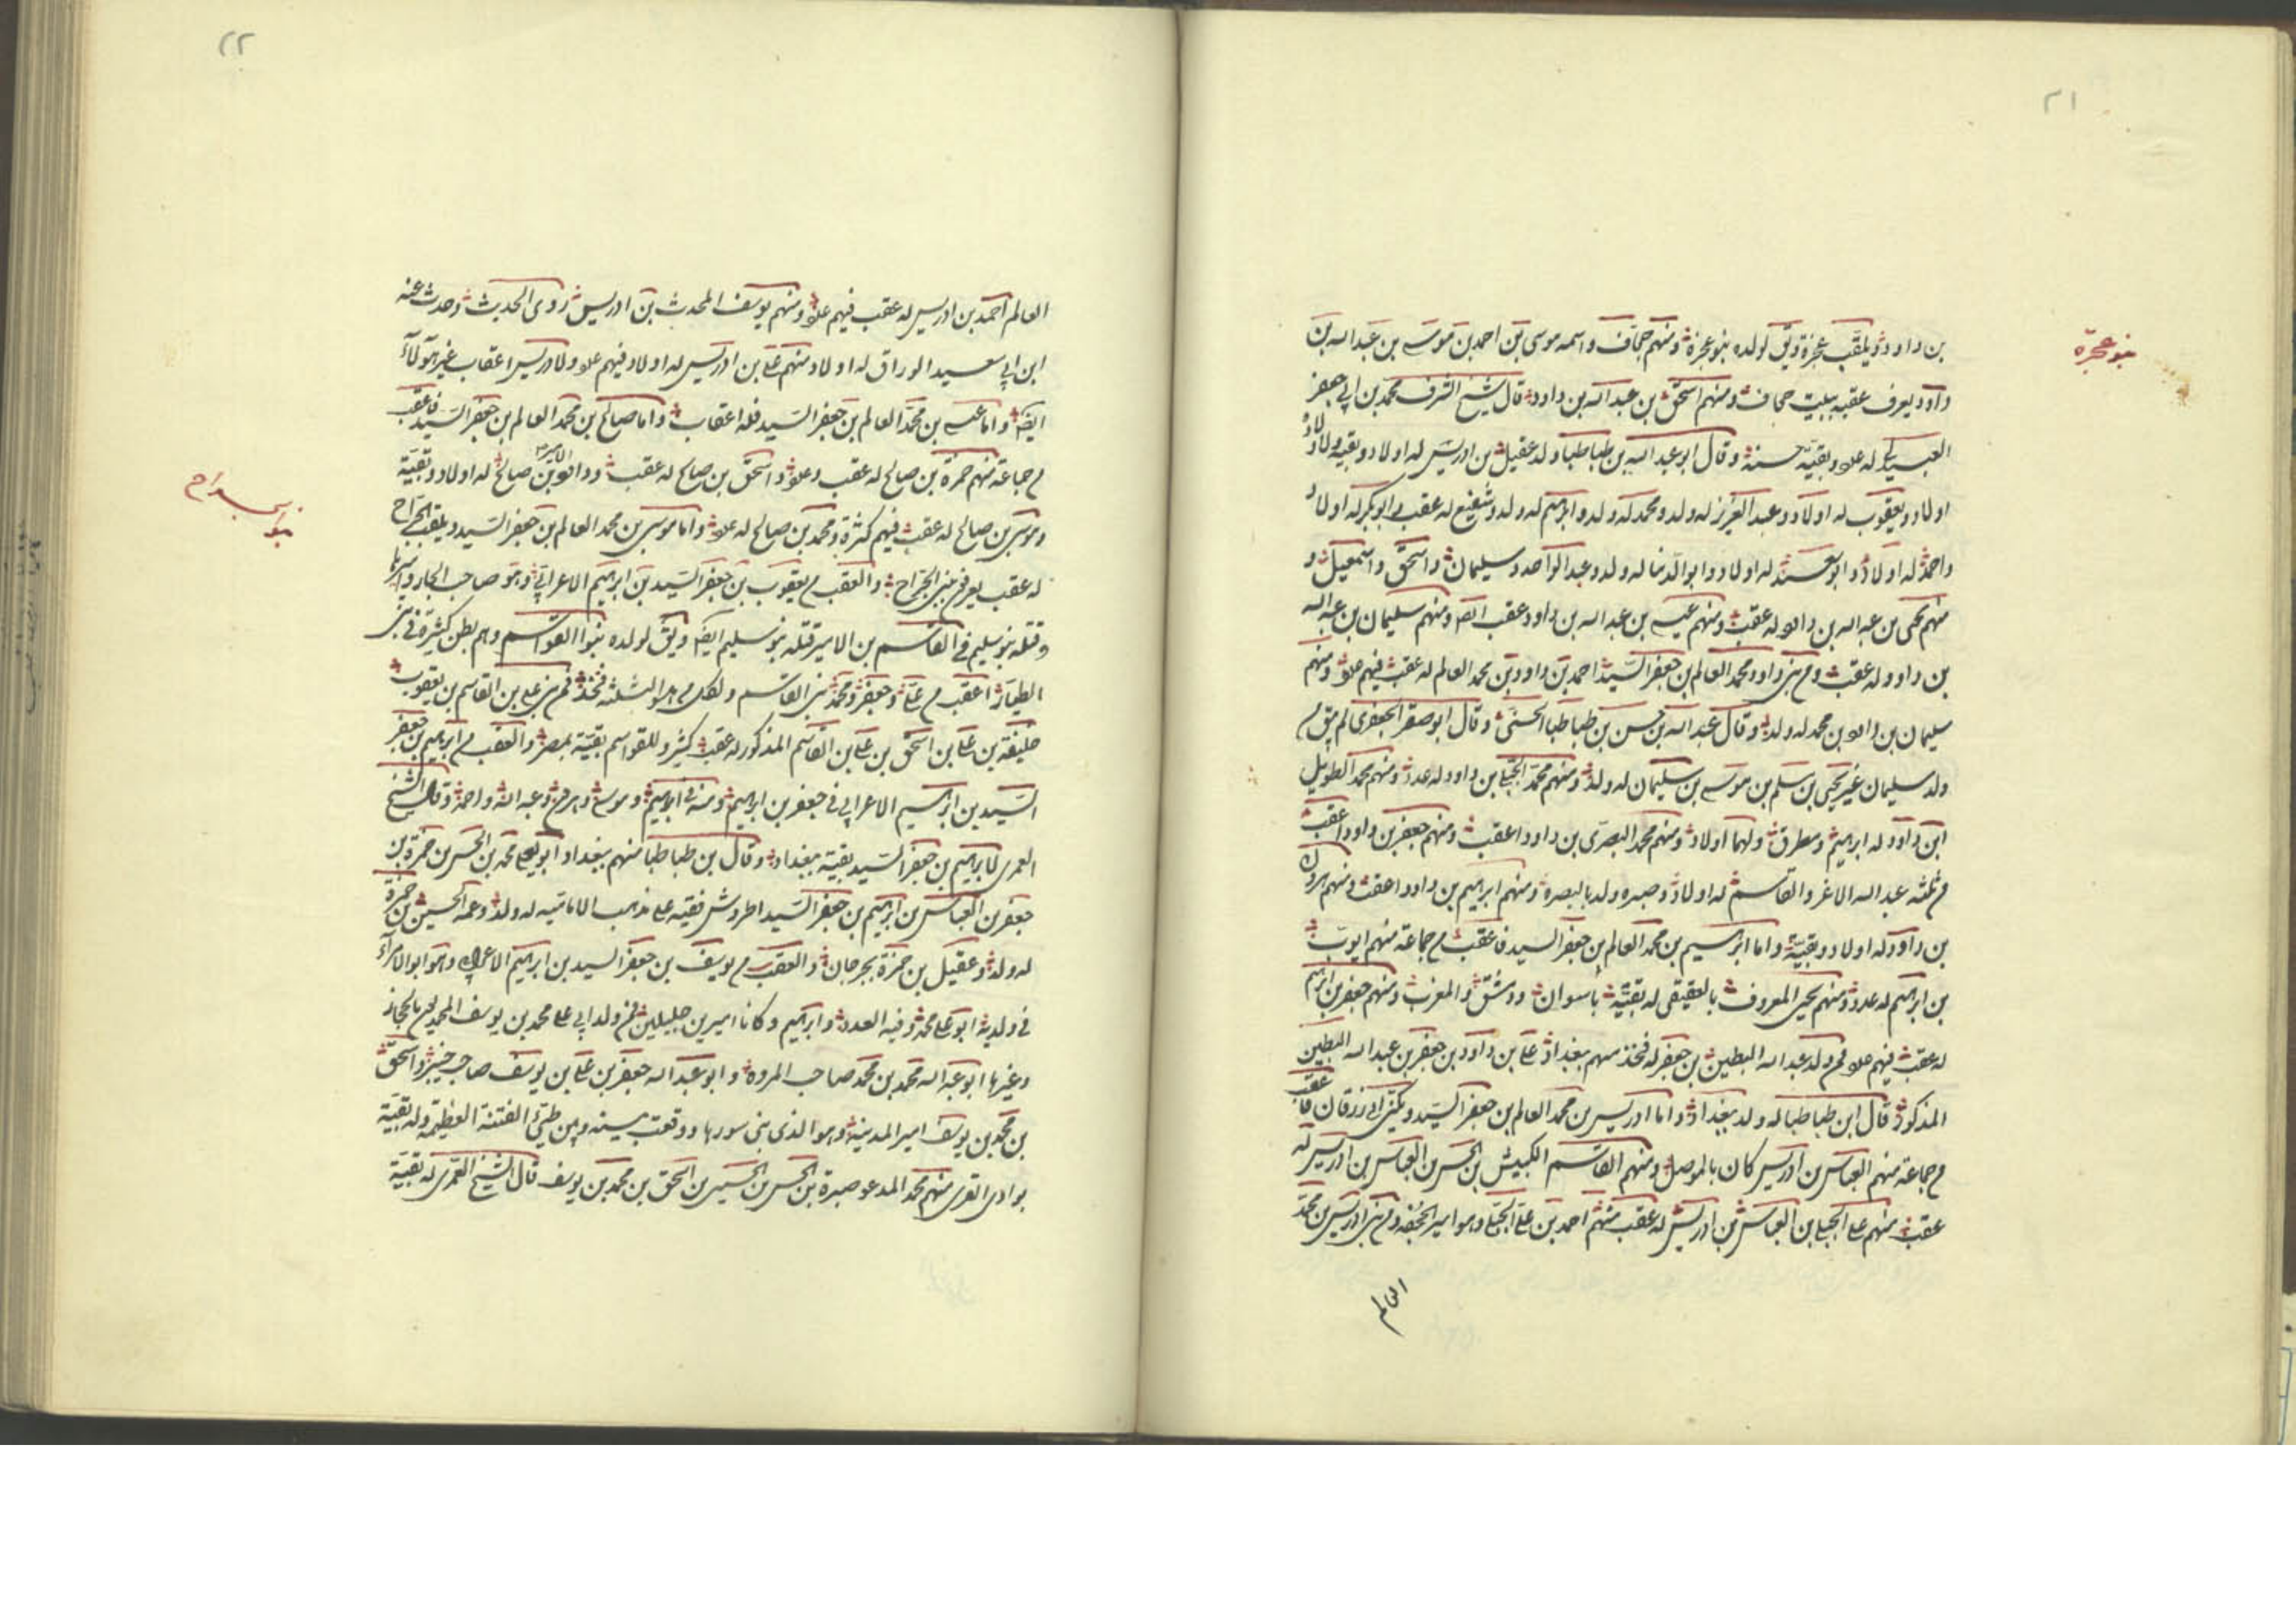 ٢١
بنو عجزة
بن داود ويلقب عجزة ويق لولده بنو عجزة ومنهم حجاف واسمه موسى بن احمد بن موسى بن عبد الله بن
داود يعرف عقبه ببيت حجاف ومنهم اسحق بن عبد الله بن داود قال شيخ الشرف محمد بن ابي جعفر
العبيدلي له عدد وبقية حسنة وقال ابو عبد الله بن طباطبا ولد عقيل بن ادريس له اولاد وبقية
اولاد ويعقوب له اولاد وعبد العزيز له ولد ومحمد له ولد وابراهيم له ولد وشفيع له عقب وابو بكر له اولاد
واحمد له اولاد وابو له اولاد وابو الدنيا له ولد وعبد الواحد وسليمان واسحق واسمعيل و
منهم يحيى بن عبد الله بن داود له عقب ومنهم عيسى بن عبد الله بن داود عقب ايضا ومنهم سليمان بن عبد الله
بن داود له عقب ومن بني داود محمد العالم بن جعفر السيد احمد بن داود بن محمد العالم له عقب فيهم عدد ومنهم
سليمان بن داود بن محمد له ولد وقال عبد الله بن حسن بن طباطبا الحسني وقال ابو صقر الجعفري لم يبق من
ولد سليمان غير يحيى بن سلم بن موسى بن سليمان له ولد ومنهم محمد بن داود له عدد ومنهم محمد الطويل
ابن داود له ابراهيم ومطرق ولهما اولاد ومنهم محمد البصري بن داود اعقب ومنهم جعفر بن داود اعقب
من ثلثه عبد الله الاغر والقاسم له اولاد وصبره ولد بالبصرة ومنهم ابراهيم بن داود اعقب ومنهم هرون
بن داود له اولاد وبقية واما ابراهيم بن محمد العالم بن جعفر السيد فاعقب من جماعة منهم ايوب
بن ابراهيم له عدد ومنهم يحيى المعروف بالعقيقي له بقية باسوان ودمشق والمغرب ومنهم جعفر بن ابراهيم
له عقب فيهم عدد فمن ولد عبد الله البطين بن جعفر له فخذ منهم ببغداد علي بن داود بن جعفر بن عبد الله البطين
المذكور قال ابن طباطبا له ولد ببغداد واما ادريس بن محمد العالم بن جعفر السيد ويكنى ابي زرقان فاعقب
من جماعة منهم العباس بن ادريس كان بالموصل ومنهم القاسم الكبيش بن الحسن بن العباس بن ادريس له
عقب منهم علي بن العباس بن ادريس له عقب منهم احمد بن علي وهو امير الجحفة ومن بني ادريس بن محمد
العالم
٢٢
العالم احمد بن ادريس له عقب فيهم عدد ومنهم يوسف المحدث بن ادريس روى الحديث وحدث عنه
ابن ابي سعيد الوراق له اولاد منهم علي بن ادريس له اولاد فيهم عدد ولادريس اعقاب غير هؤلاء
ايضا واما عيسى بن محمد العالم بن جعفر السيد فله اعقاب واما صالح بن محمد العالم بن جعفر السيد فاعقب
من جماعة منهم حمزة بن صالح له عقب وعدد واسحق بن صالح له عقب وداود الامير بن صالح له اولاد وبقية
وموسى بن صالح له عقب فيهم كثرة ومحمد بن صالح له عدد واما موسى بن محمد العالم بن جعفر السيد ويلقب الجراح
بنو الجراح
له عقب يعرف ببني الجراح والعقب من يعقوب بن جعفر السيد بن ابراهيم الاعرابي وهو صاحب الجار واميرها
وقتله بنو سليم في القاسم بن الامير قتله بنو سليم ايضا ويق لولده بنوا القواسم وهم بطن كثيرة في بني
الطيار اعقب من علي وجعفر ومحمد بني القاسم ولكل من هولا الثلثه فخذ فمن بني علي بن القاسم بن يعقوب
خليفة بن علي بن اسحق بن علي بن القاسم المذكور له عقب كثير وللقواسم بقية بمصر والعقب من ابراهيم بن جعفر
السيد بن ابراهيم الاعرابي في جعفر بن ابراهيم ومنه في ابراهيم وموسى وهرون وعبد الله واحمد وقال الشيخ
العمري لابراهيم بن جعفر السيد بقية ببغداد وقال بن طباطبا منهم ببغداد ابو يعلى محمد بن الحسن بن حمزة بن
جعفر بن العباس بن ابراهيم بن جعفر السيد اطروش فقيه على مذهب الامامية له ولد وعمه الحسين بن حمزة
له ولد وعقيل بن حمزة بجرجان والعقب من يوسف بن جعفر السيد بن ابراهيم الاعرابي وهو ابو الامراء
في ولديه ابو علي محمد وفيه العدد وابراهيم وكانا اميرين جليلين فمن ولد ابي علي محمد بن يوسف المحمديون بالحجاز
وغيرها ابو عبد الله محمد بن محمد صاحب المروه وابو عبد الله جعفر بن علي بن يوسف صاحب خيبر واسحق
بن محمد بن يوسف امير المدينة وهو الذي بنى سورها ووقعت بينه وبين طيئ الفتنة العظيمة وله بقية
بوادي القرى منهم محمد المدعو صبرة بن الحسن بن الحسين بن اسحق بن محمد بن يوسف قال الشيخ العمري له بقية